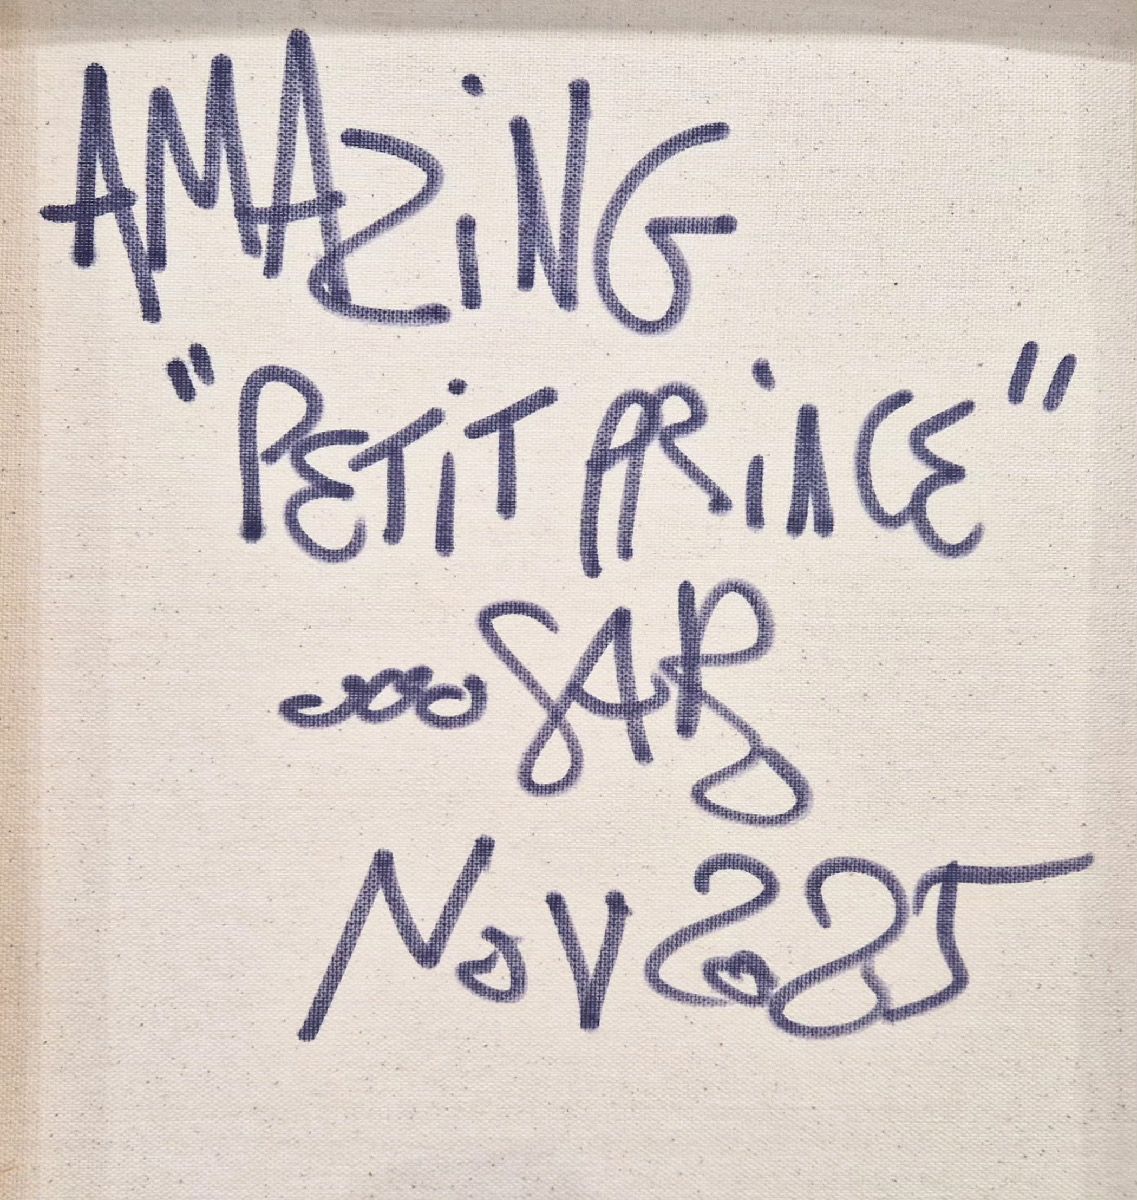 AMAZiNG
"PETiT PRiNCE"
SAB
NoV 2025